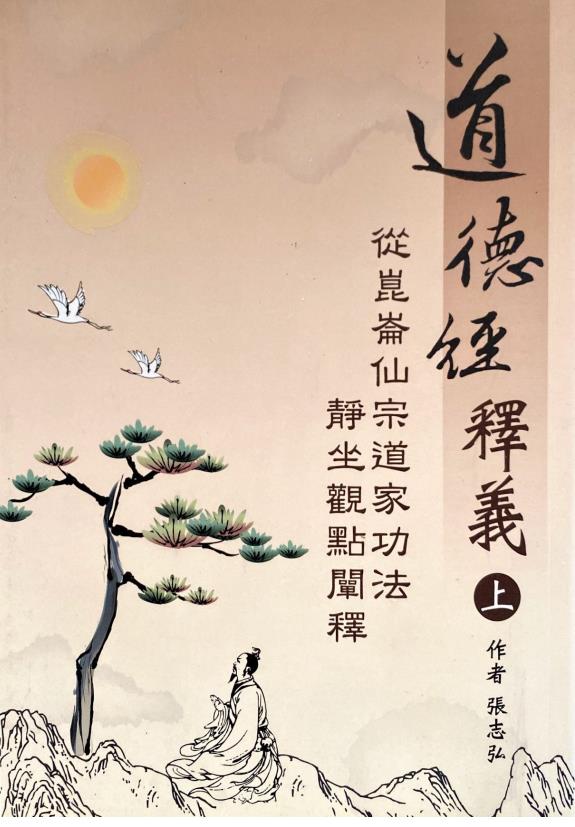 道德經釋義
上
作者 張志弘
從崑崙仙宗道家功法
靜坐觀點闡釋